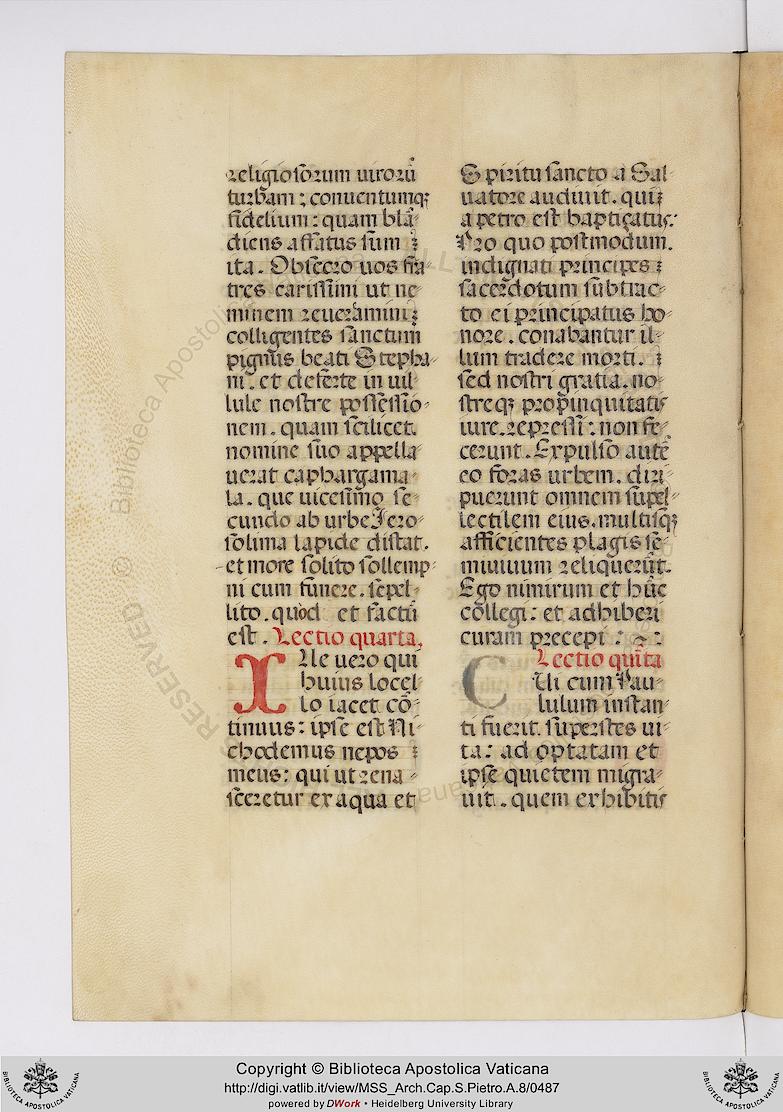 religiosorum uirorū
turbam : conuentumqꝫ
fidelium : quam blā-
diens affatus sum
ita . Obsecro uos fra-
tres carissimi ut ne-
minem reueramini :
colligentes sanctum
pignus beati Stepha-
ni . et deferte in uil-
lule nostre possessio-
nem . quam scilicet
nomine suo appella-
uerat caphargama-
la . que uicesimo se-
cundo ab urbe Jero-
solima lapide distat .
et more solito sollemp-
ni cum funere . sepel-
lito . quod et factū
est . Lectio quarta,
Ille uero qui
huius locel-
lo iacet cō-
tinuus : ipse est Ni-
chodemus nepos
meus : qui ut rena-
sceretur ex aqua et
Spiritu sancto a Sal-
uatore audiuit . qui
a petro est baptiçatus :
Pro quo postmodum .
indignati principes
sacerdotum subtrac-
to ei principatus ho-
nore . conabantur il-
lum tradere morti .
sed nostri gratia . no-
streqꝫ propinquitatis
iure . repressi : non fe-
cerunt . Expulso autē
eo foras urbem . diri-
puerunt omnem supel-
lectilem eius . multisqꝫ
afficientes plagis se-
miuiuum reliquerūt .
Ego nimirum et hūc
collegi : et adhiberi
curam precepi :
Lectio quīta
Cui cum Pau-
lulum instan-
ti fuerit . superstes ui-
ta : ad optatam et
ipse quietem migra-
uit . quem exhibitis
Copyright © Biblioteca Apostolica Vaticana
http://digi.vatlib.it/view/MSS_Arch.Cap.S.Pietro.A.8/0487
powered by DWork • Heidelberg University Library
BIBLIOTECA APOSTOLICA VATICANA
BIBLIOTECA APOSTOLICA VATICANA